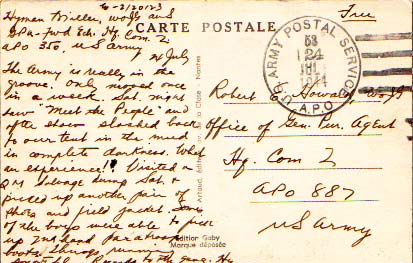 6-2/20123
Hyman Miller, wojg and
GPA - fwd Ech. Hq. Com. Z
APO 350, US Army
24 July
The Army is really in the
groove. Only moped once
in a week. Sat. night
saw "Meet the People" and
after show slushed back
to our tent in the mud
in complete darkness. What
an experience!! Visited a
QM salvage dump Sat. &
picked up another pair of
shoes and field jacket. Some
of the boys were able to pick
up 2nd hand Paratroop
boots. Things running
Regards to the gang. Hy
CARTE POSTALE
Free
U.S. ARMY POSTAL SERVICE
A.P.O.
24
JUL
1944
Robert Howard
Office of Gen. Pur. Agent
Hq. Com Z
APO 887
US Army
Artaud, Éditeur, de la Close - Nantes
Édition Gaby
Marque déposée